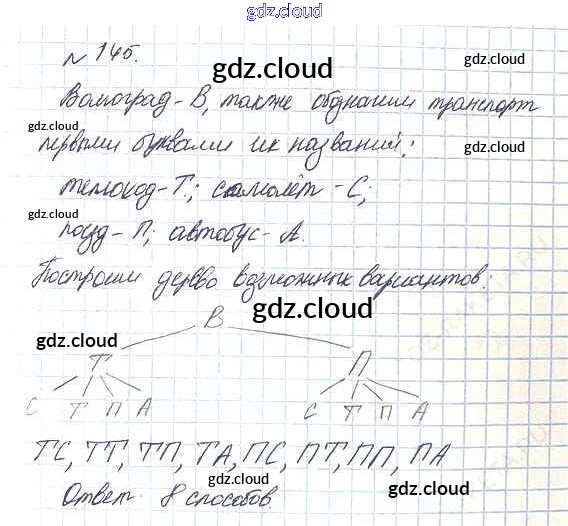 gdz.cloud
№ 145.
gdz.cloud
Волгоград - В, также обозначим транспорт
gdz.cloud
первыми буквами их названий:
gdz.cloud
теплоход - Т; самолёт - С;
gdz.cloud
поезд - П; автобус - А.
gdz.cloud
Построим дерево возможных вариантов:
gdz.cloud
В
gdz.cloud
gdz.cloud
Т П
С Т П А С Т П А
gdz.cloud
ТС, ТТ, ТП, ТА, ПС, ПТ, ПП, ПА
gdz.cloud
gdz.cloud
Ответ: 8 способов.
gdz.cloud